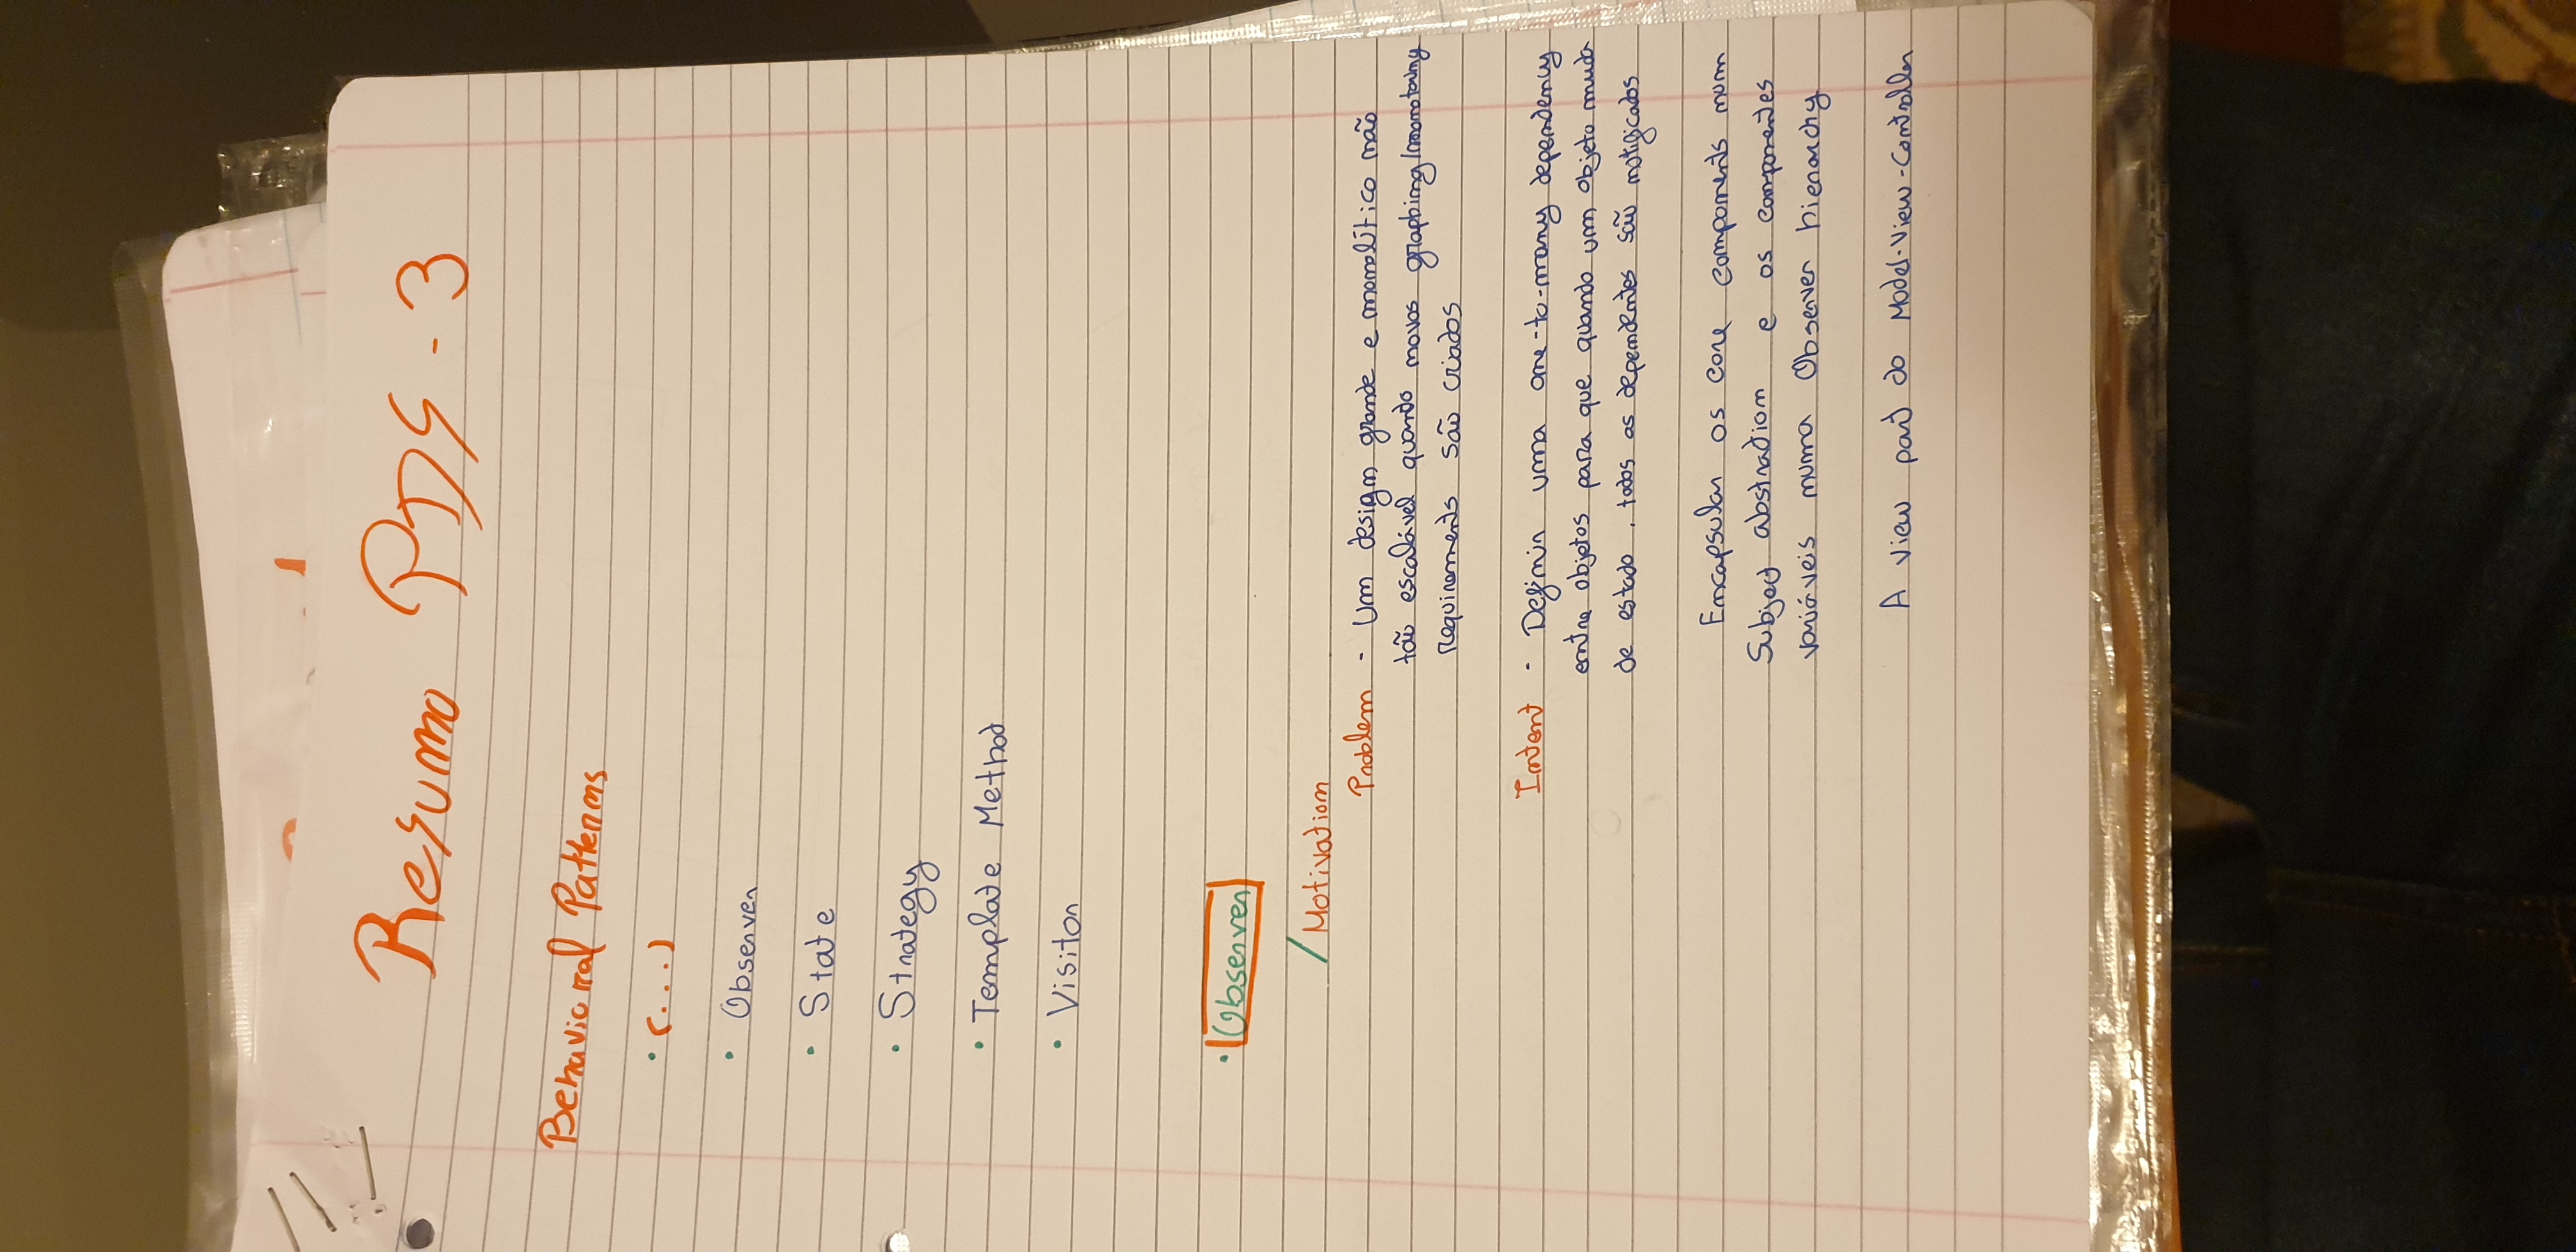 Resumo PDS - 3
Behavioral Patterns
• (...)
• Observer
• State
• Strategy
• Template Method
• Visitor
• Observer
/ Motivation
Problem - Um design grande e monolítico não
tão escalável quando novos graphing/monotoring
requirements são criados
Intent - Definir uma one-to-many dependency
entre objetos para que quando um objeto muda
de estado, todos os dependentes são notificados
Encapsular os core components num
Subject abstration e os componentes
variáveis numa Observer hierarchy
A view part do Model-View-Controller